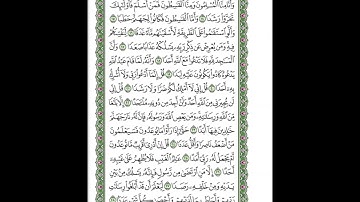 وَأَنَّا مِنَّا ٱلْمُسْلِمُونَ وَمِنَّا ٱلْقَٰسِطُونَ فَمَنْ أَسْلَمَ فَأُو۟لَٰٓئِكَ
تَحَرَّوْا۟ رَشَدًا ١٤ وَأَمَّا ٱلْقَٰسِطُونَ فَكَانُوا۟ لِجَهَنَّمَ حَطَبًا ١٥
وَأَلَّوِ ٱسْتَقَٰمُوا۟ عَلَى ٱلطَّرِيقَةِ لَأَسْقَيْنَٰهُم مَّآءً غَدَقًا ١٦ لِّنَفْتِنَهُمْ
فِيهِ وَمَن يُعْرِضْ عَن ذِكْرِ رَبِّهِۦ يَسْلُكْهُ عَذَابًا صَعَدًا ١٧ وَأَنَّ
ٱلْمَسَٰجِدَ لِلَّهِ فَلَا تَدْعُوا۟ مَعَ ٱللَّهِ أَحَدًا ١٨ وَأَنَّهُۥ لَمَّا قَامَ عَبْدُ ٱللَّهِ
يَدْعُوهُ كَادُوا۟ يَكُونُونَ عَلَيْهِ لِبَدًا ١٩ قُلْ إِنَّمَآ أَدْعُوا۟ رَبِّى وَلَآ أُشْرِكُ
بِهِۦٓ أَحَدًا ٢٠ قُلْ إِنِّى لَآ أَمْلِكُ لَكُمْ ضَرًّا وَلَا رَشَدًا ٢١ قُلْ إِنِّى
لَن يُجِيرَنِى مِنَ ٱللَّهِ أَحَدٌ وَلَنْ أَجِدَ مِن دُونِهِۦ مُلْتَحَدًا ٢٢ إِلَّا بَلَٰغًا
مِّنَ ٱللَّهِ وَرِسَٰلَٰتِهِۦ وَمَن يَعْصِ ٱللَّهَ وَرَسُولَهُۥ فَإِنَّ لَهُۥ نَارَ جَهَنَّمَ
خَٰلِدِينَ فِيهَآ أَبَدًا ٢٣ حَتَّىٰٓ إِذَا رَأَوْا۟ مَا يُوعَدُونَ فَسَيَعْلَمُونَ
مَنْ أَضْعَفُ نَاصِرًا وَأَقَلُّ عَدَدًا ٢٤ قُلْ إِنْ أَدْرِىٓ أَقَرِيبٌ مَّا تُوعَدُونَ
أَمْ يَجْعَلُ لَهُۥ رَبِّىٓ أَمَدًا ٢٥ عَٰلِمُ ٱلْغَيْبِ فَلَا يُظْهِرُ عَلَىٰ غَيْبِهِۦٓ
أَحَدًا ٢٦ إِلَّا مَنِ ٱرْتَضَىٰ مِن رَّسُولٍ فَإِنَّهُۥ يَسْلُكُ مِنۢ بَيْنِ
يَدَيْهِ وَمِنْ خَلْفِهِۦ رَصَدًا ٢٧ لِّيَعْلَمَ أَن قَدْ أَبْلَغُوا۟ رِسَٰلَٰتِ
رَبِّهِمْ وَأَحَاطَ بِمَا لَدَيْهِمْ وَأَحْصَىٰ كُلَّ شَىْءٍ عَدَدًۢا ٢٨